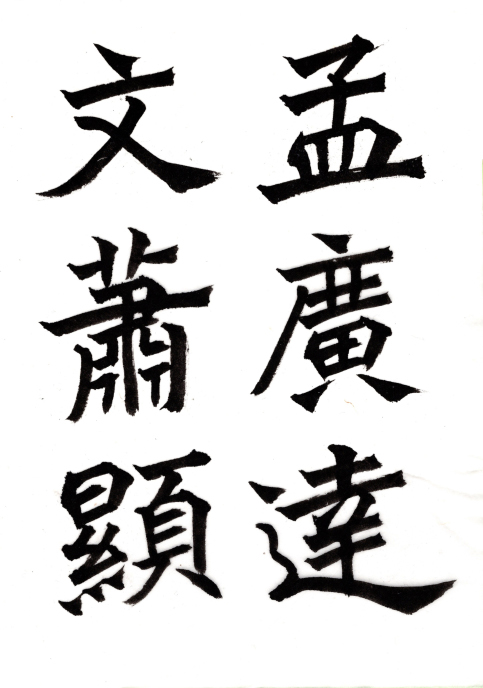 孟廣達
文蕭顯